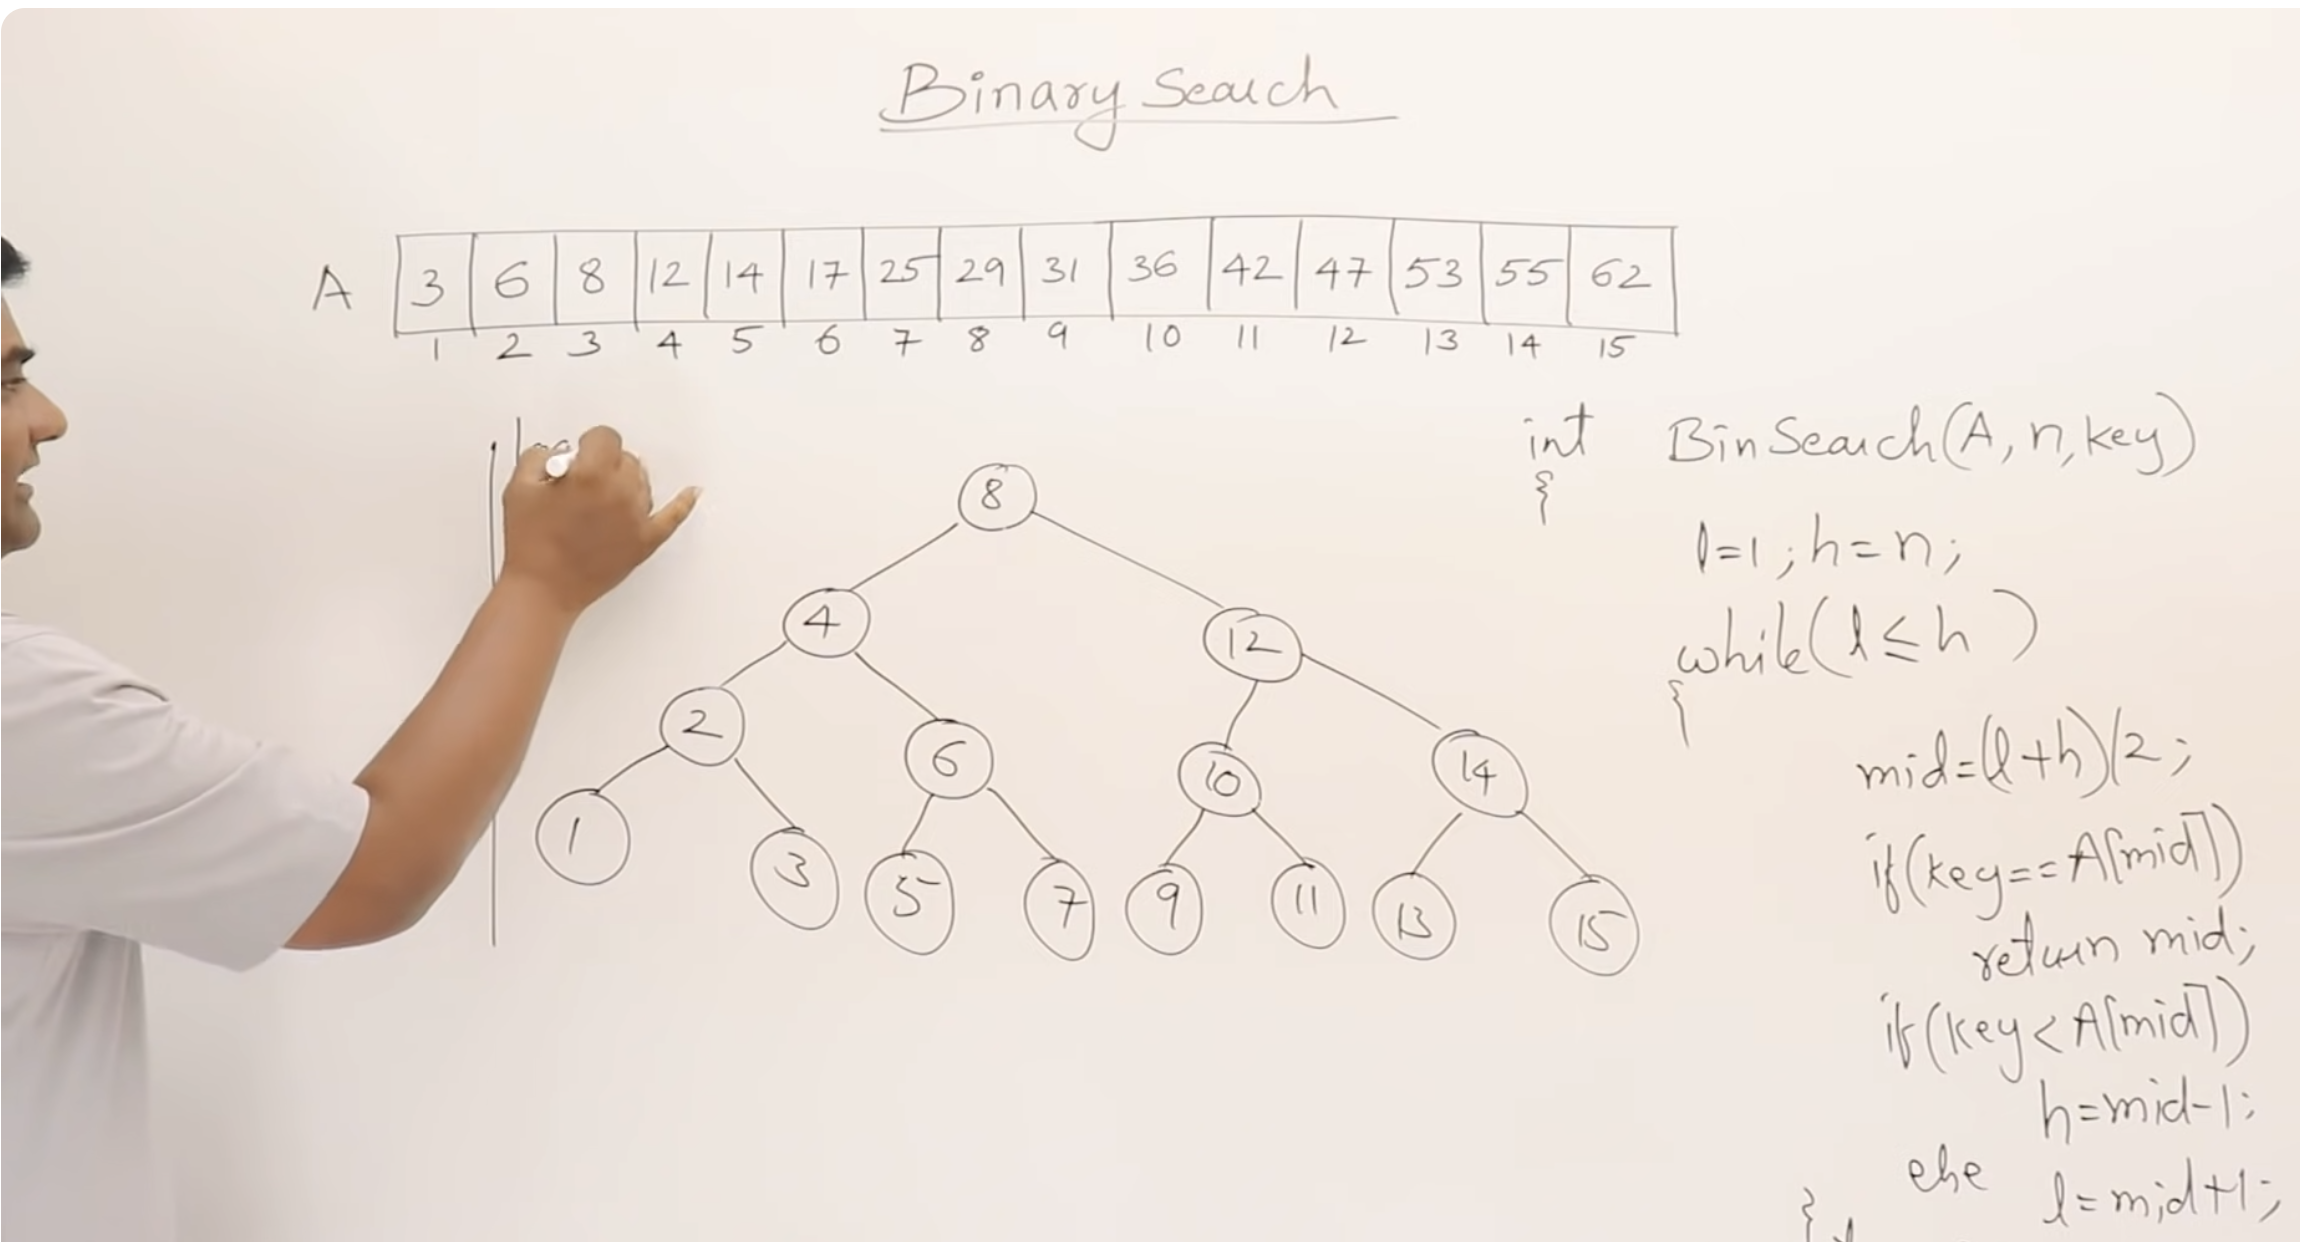 Binary Search
A 3 6 8 12 14 17 25 29 31 36 42 47 53 55 62
1 2 3 4 5 6 7 8 9 10 11 12 13 14 15
8
4 12
2 6 10 14
1 3 5 7 9 11 13 15
int BinSearch(A, n, key)
{
l=1; h=n;
while(l≤h)
{
mid=(l+h)/2;
if(key==A[mid])
return mid;
if(key<A[mid])
h=mid-1;
else
l=mid+1;
}